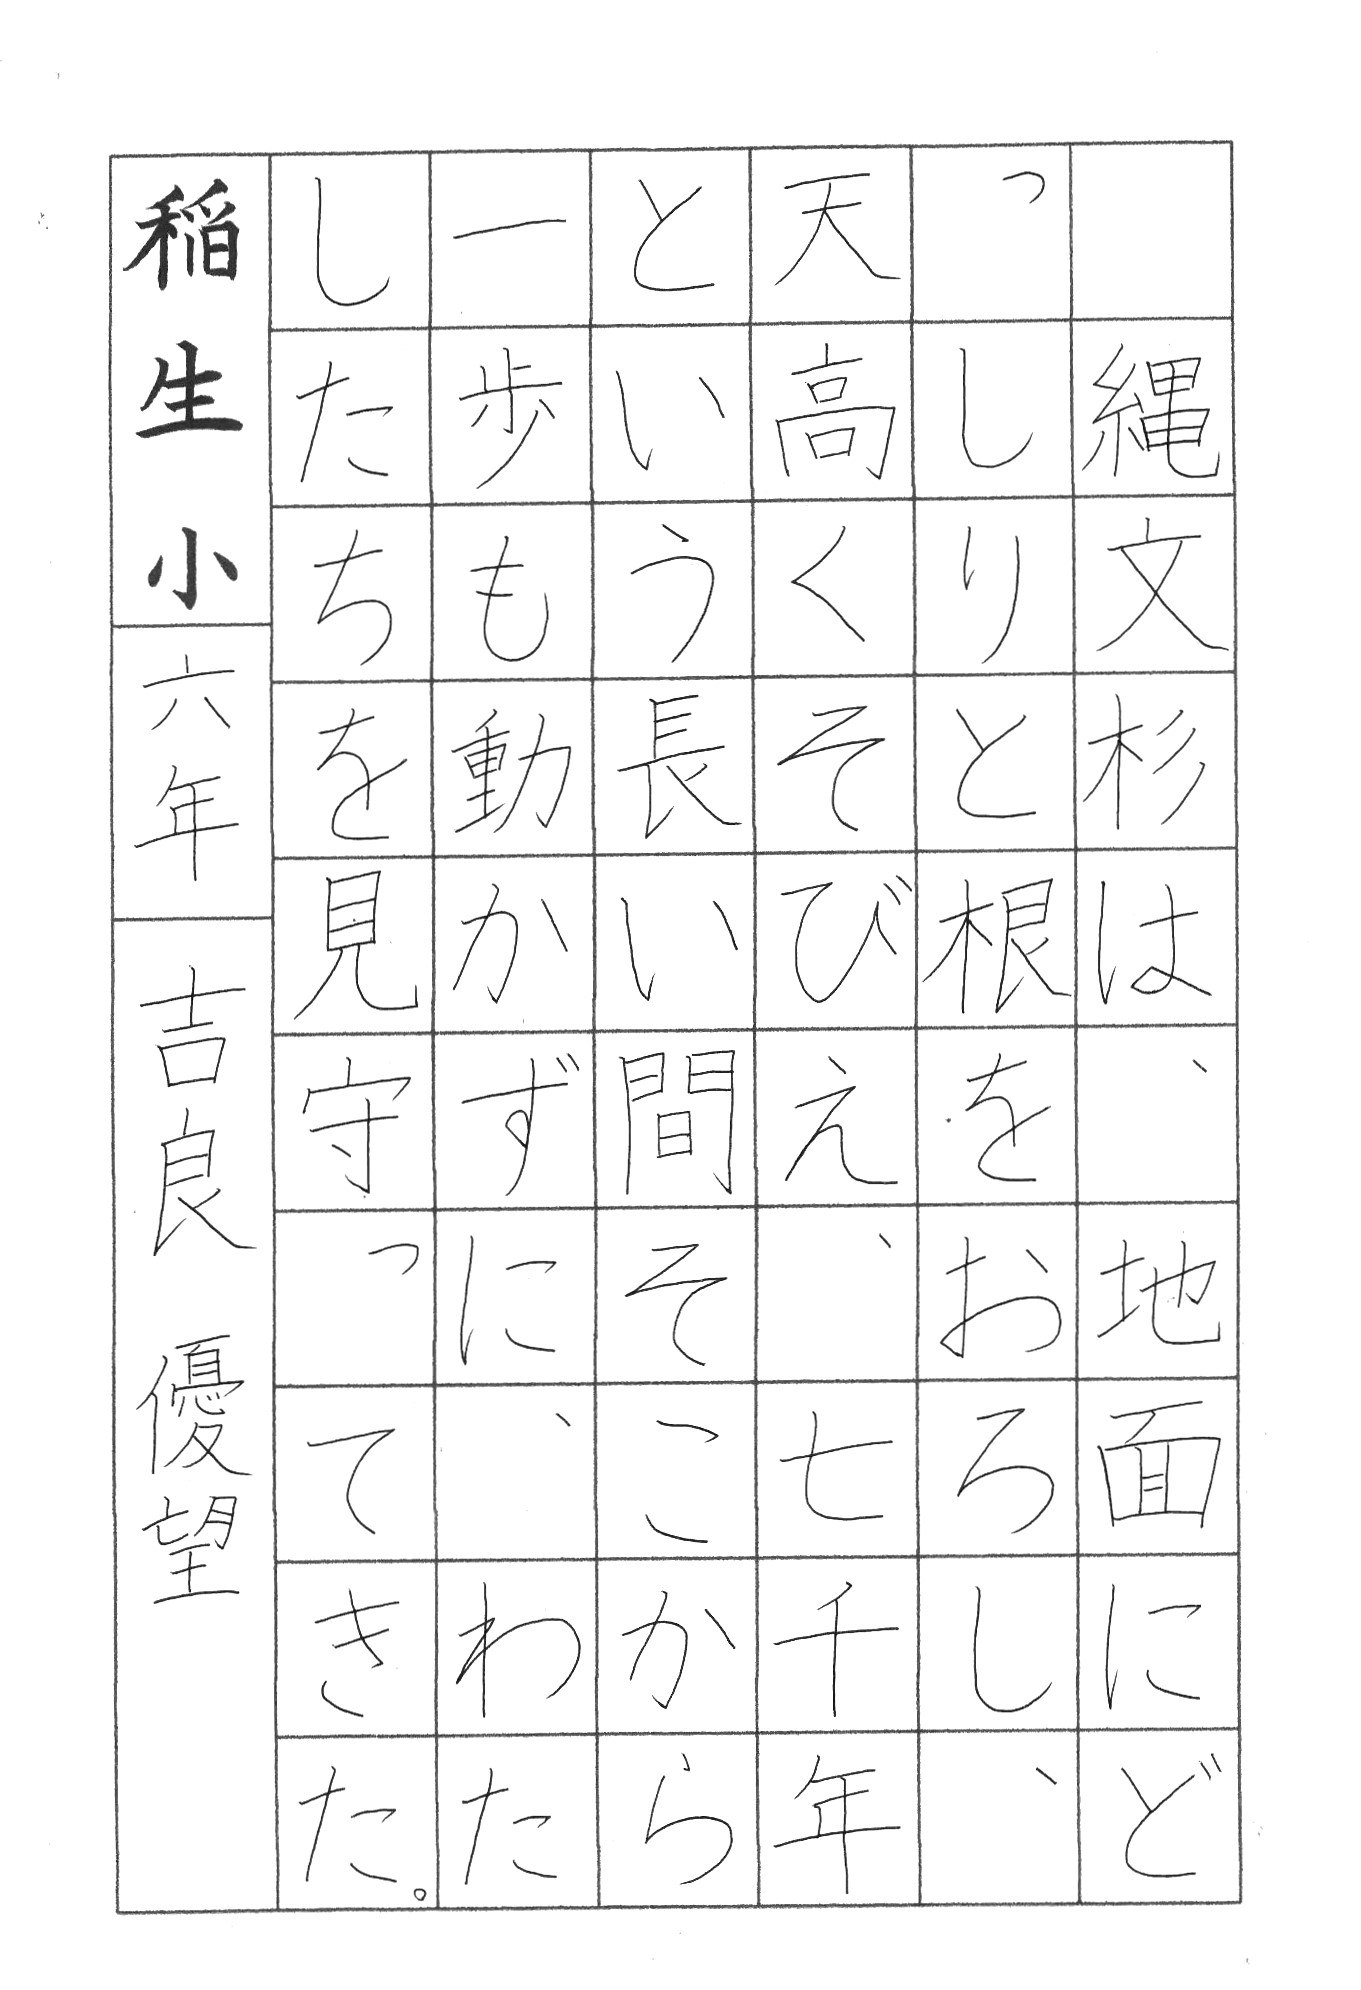 縄文杉は、地面にど
っしりと根をおろし、
天高くそびえ、七千年
という長い間そこから
一歩も動かずに、わた
したちを見守ってきた。
稲生小 六年 吉良 優望